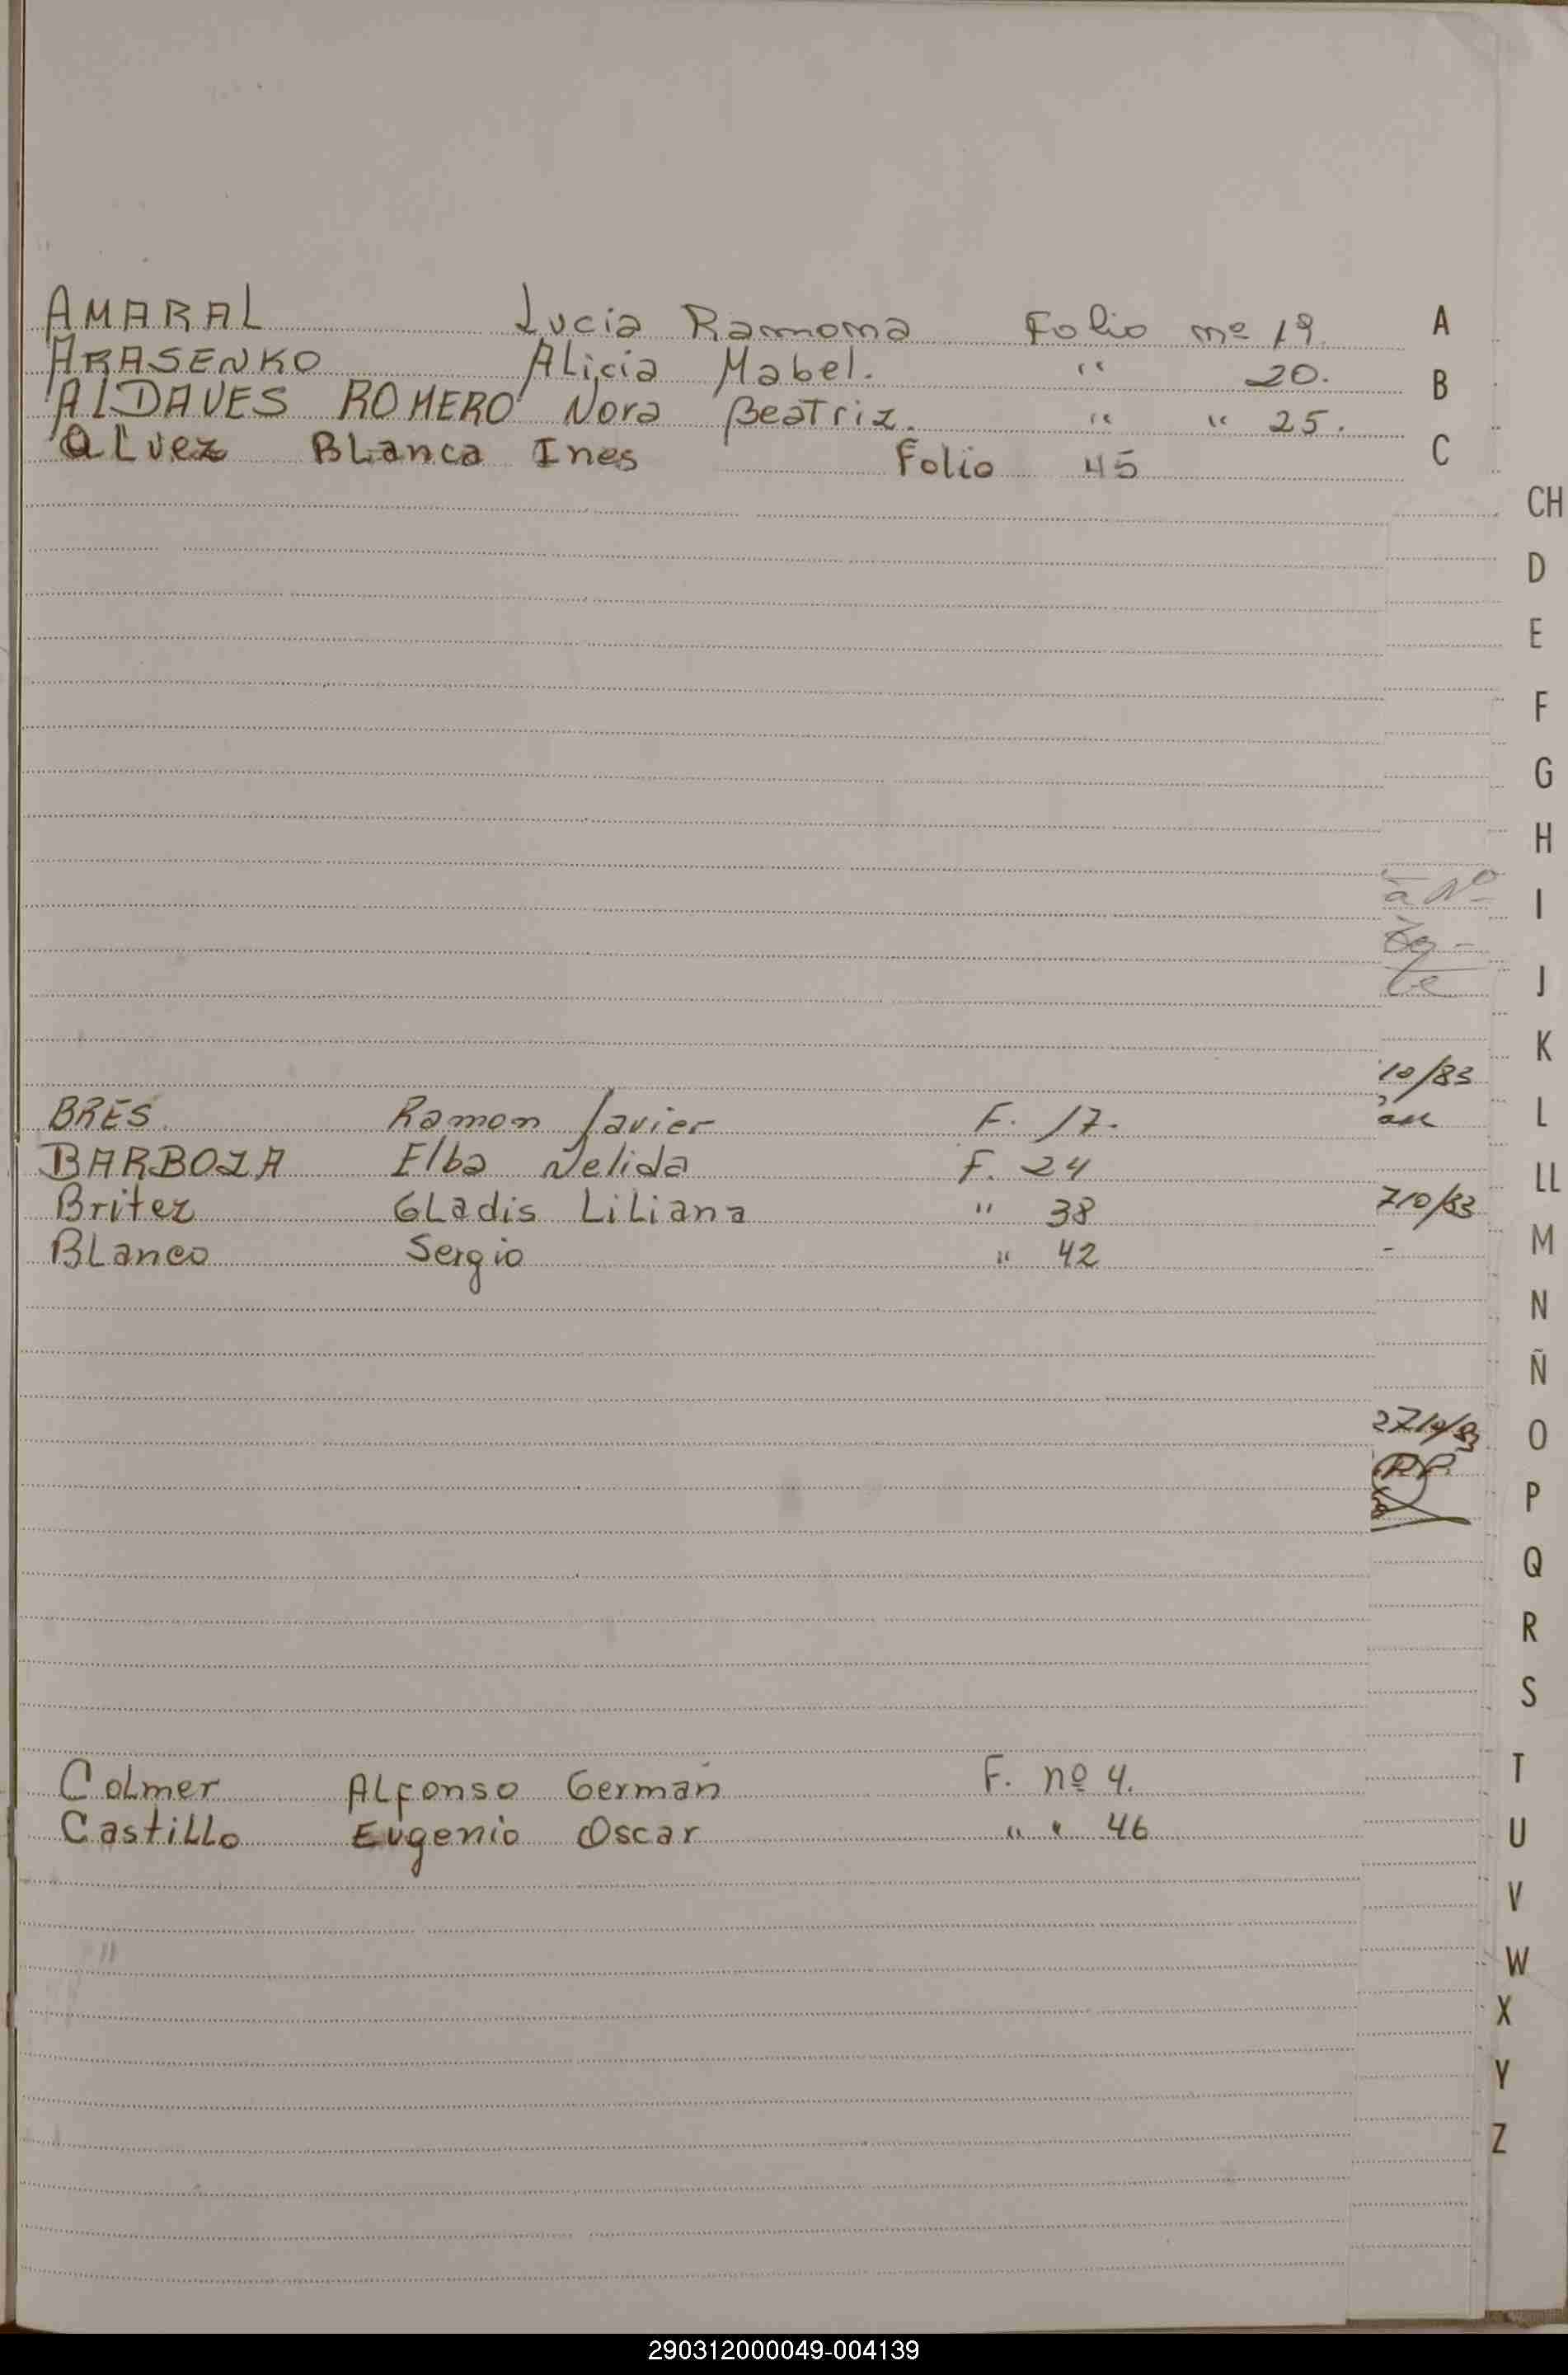 AMARAL Lucia Ramona Folio nº 19.
ARASENKO Alicia Mabel. " 20.
ALDAVES ROMERO Nora Beatriz. " " 25.
Alvez Blanca Ines Folio 45
BRES. Ramon Javier F. 17.
BARBOZA Elba Nelida F. 24
Britez Gladis Liliana " 38
Blanco Sergio " 42
Colmer Alfonso German F. nº 4.
Castillo Eugenio Oscar " " 46
A
B
C
CH
D
E
F
G
H
I
J
K
L
LL
M
N
Ñ
O
P
Q
R
S
T
U
V
W
X
Y
Z
Nº
10/83
710/83
2710/83
290312000049-004139